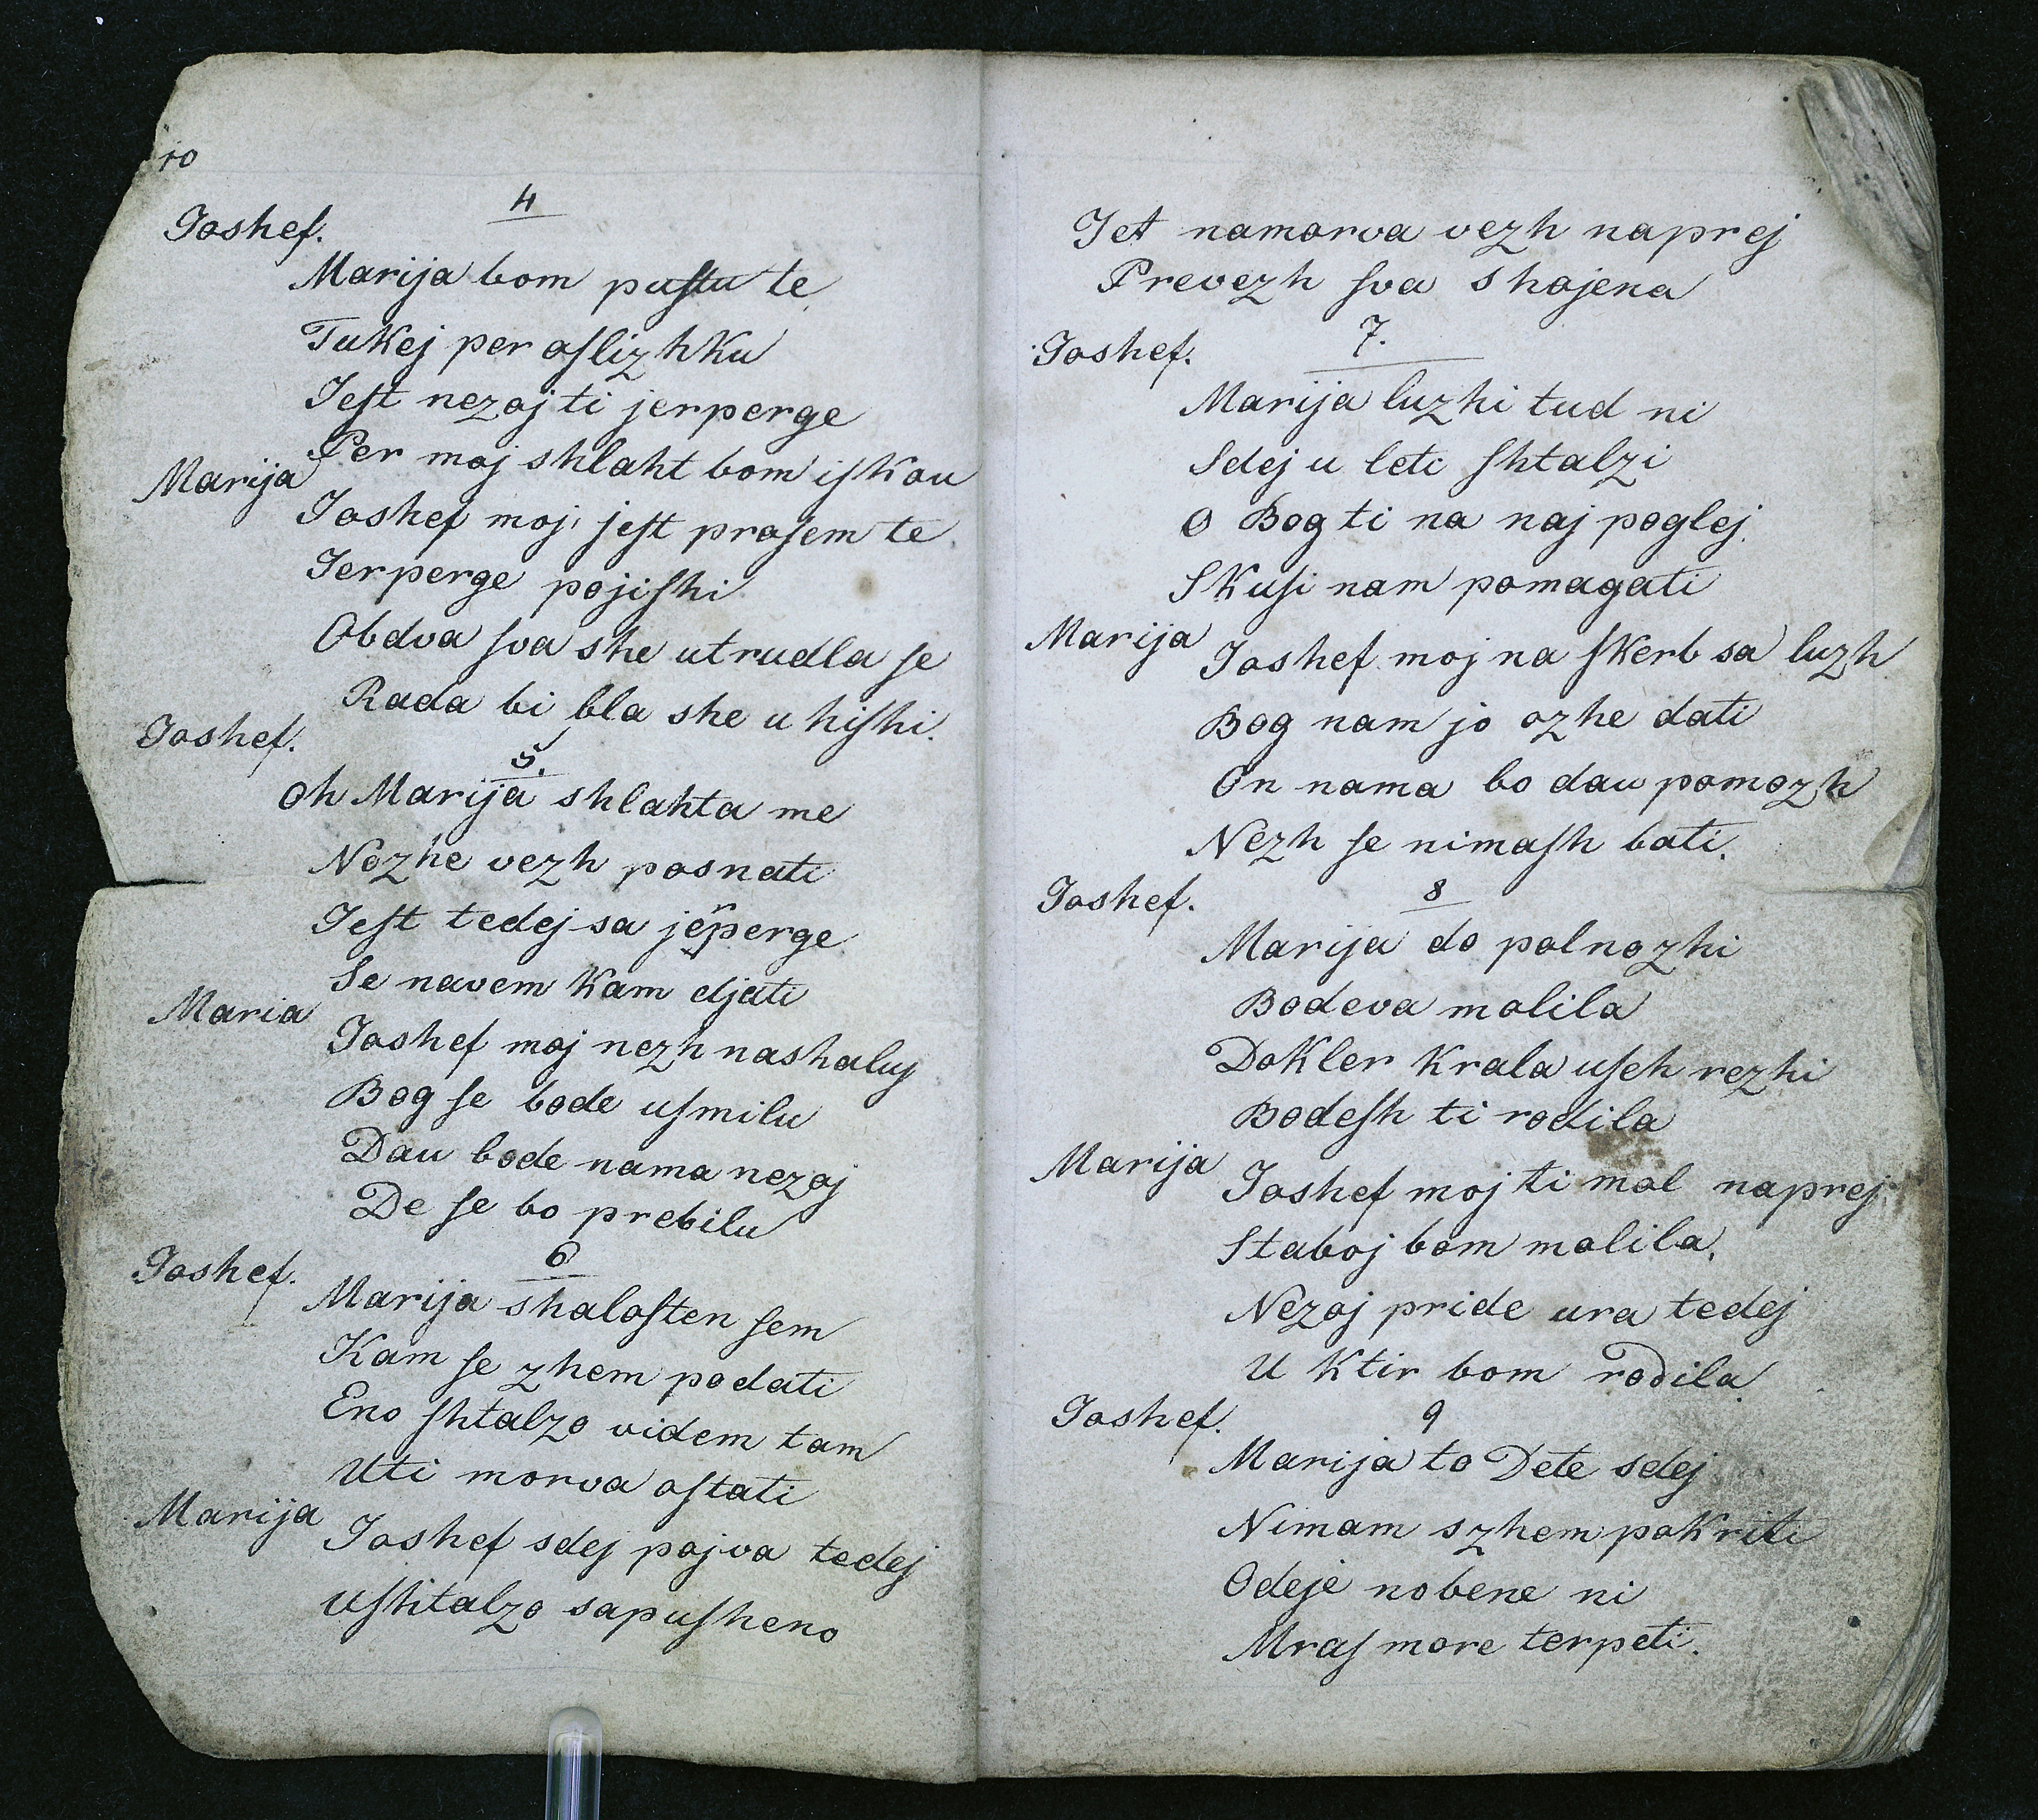 10
4
Joshef.
Marija bom puſtu te
Tukej per oſlizhku
Jeſt nezoj ti jerperge
Per moj shlaht bom iſkou
Marija
Joshef moj, jeſt proſem te
Jerperge pojiſhi
Obdva ſva she utrudla ſe
Rada bi bla she u hiſhi.
Joshef.
5.
Oh Marija shlahta me
Nozhe vezh posnati
Jeſt tedej sa jerperge
Se navem kam djati
Maria
Joshef moj nezh nashaluj
Bog ſe bode uſmilu
Dau bode nama nezoj
De ſe bo prebilu
6
Joshef.
Marija shaloſten ſem
Kam ſe zhem podati
Eno ſhtalzo videm tam
Uti morva oſtati
Marija
Joshef sdej pojva tedej
Uſhtalzo sapuſheno
Jet namorva vezh naprej
Prevezh ſva shojena
7.
Joshef.
Marija luzhi tud ni
Sdej u leti ſhtalzi
O Bog ti na naj poglej
Skuſi nam pomagati
Marija
Joshef moj na ſkerb sa luzh
Bog nam jo ozhe dati
On nama bo dau pomozh
Nezh ſe nimaſh bati.
Joshef.
8
Marija do polnozhi
Bodeva molila
Dokler krala uſeh rezhi
Bodeſh ti rodila
Marija
Joshef moj ti mol naprej
Staboj bom molila.
Nezoj pride ura tedej
U ktir bom rodila
Joshef.
9
Marija to Dete sdej
Nimam szhem pokriti
Odeje nobene ni
Mraſ more terpeti.